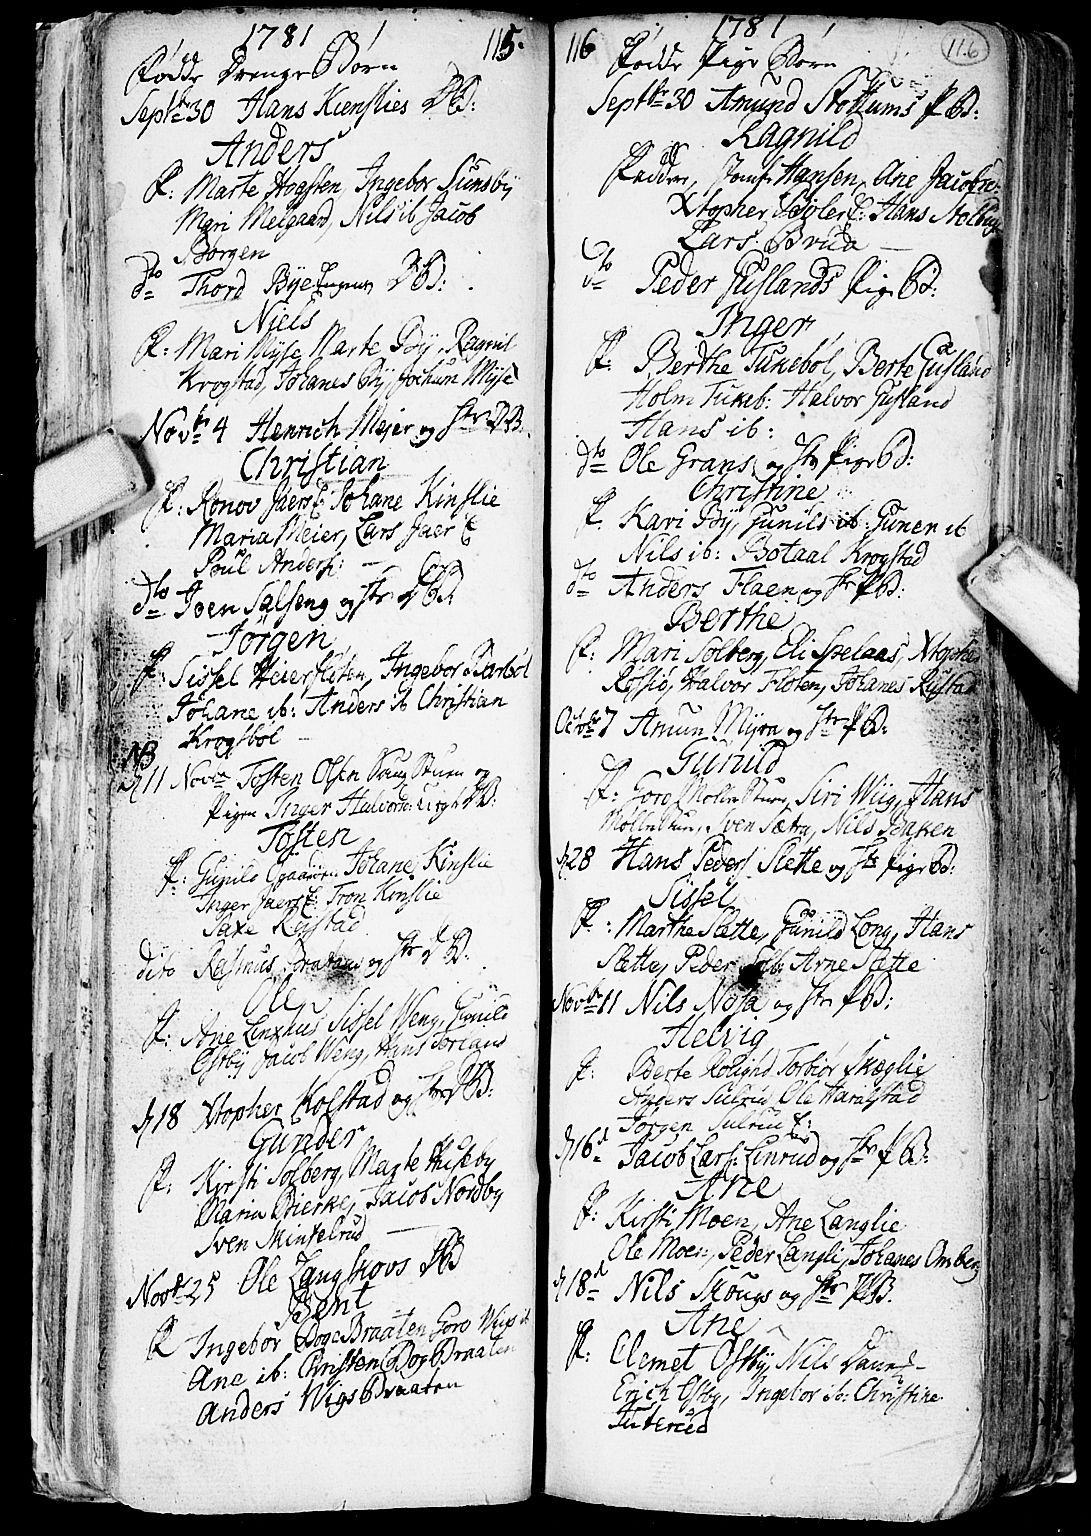 1781 115.
Fødde Drenge Børn
Septbr 30 Hans Kienslies DB:
Anders
F: Marte Hogsten, Ingebor Sundby
Mari Melgaard, Nils ib Jacob
Borgen
dto Thord Bye DB:
Niels
F: Mari Myse, Marte Bÿ, Ragnil
Krogstad, Johanes Bÿ, Jochum Myse
Novbr 4 Henrich Mejer og Hstr DB.
Christian
F: Ronov Jaer E Johane Kinslie
Maria Meier, Lars Jaer E
Poul Anders:
dto Joen Salseng og Hstr DB
Jørgen
F: Sissel Heiersløten, Ingebor Barbøl
Johane ib: Anders ib Christian
Krogsbøl
NB
d 11 Novbr Tosten Olsen og
Pigen Inger Halvord: DB:
Tosten
F: Gunild Johane Kinslie
Inger Jaers E: Tron Kinslie
Saxe Reistad
dito Rasmus og Hstr DB.
Ole
F: Ane Linxhus Sissel Weng, Gunild
Østbÿ Jacob Weng, Hans
d 18 Xtopher Kolstad og Hstr DB:
Gunder
F: Kirsti Solberg, Marte Huseby
Maria Bierke, Jacob Nordby
Sven Mintelrud
Novbr 25 Ole Langskovs DB
Bent
F Ingebor BogeBraaten Goro Wigs ib
Ane ib: Christen BogBraaten
Anders WigsBraaten
116 1781 116
Fødde Pige Børn
Septbr 30 Amund Stokkums PB:
Ragnild
Fadder, Jomfr Hansen, Ane Jacobs:
Xtopher E: Hans
Lars Bruda
dto Peder Gislands Pige B:
Inger
F: Berthe Tukebøl, Berte Gisland
Holm Tukeb: Halvor Gisland
Hans ib:
dto Ole Grans og Hstr Pige B:
Christine
F. Kari Bÿ, Gunild ib: Guner ib
Nils ib: Botaal Krogstad
dto Anders Flaen og Hstr PB:
Berthe
F: Mari Solberg, Eli Spelaas, Xtopher
Røssig, Halvor Floten, Johanes Rustad
Octobr 7 Amun Myra og Hstr PB:
Gunild
F: Goro MollerStuen, Siri Wiig, Hans
MollerStuen, Sven Sætra, Nils Bakken
d 28 Hans Peders Slette og Hstr Pige B:
Sissel
F: Marthe Slette, Gunild Long, Hans
Slette, Peder Arne Slette
Novbr 11 Nils Nosa og Hstr PB:
Helvig
F: Berte Rolighd Torbior Skæglie
Anders Sulrud Ole Haralstad
Jørgen Sulrud E:
d 16d Jacob Lars: Linrud og Hstr PB:
Ane
F: Kirsti Moen, Ane Langlie
Ole Moen, Peder Langli, Johanes Omberg
d 18d Nils Skougs og Hstr PB.
Ane
F: Clemet Ostbÿ, Nils
Erich Ostby, Ingebor ib: Christine